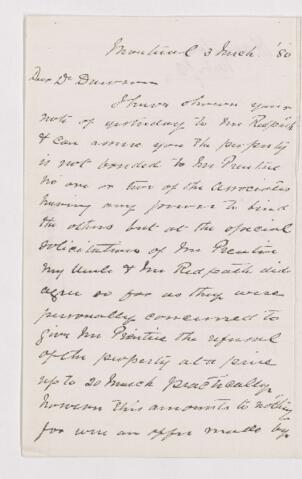 Montreal 3 March '80
Dear Dr Dawson
I have shown your
note of yesterday to Mr Redpath
& can assure you the property
is not bonded to Mr Prentice
no one or two of the associates
having any power to bind
the others but at the special
solicitations of Mr Prentice
my Uncle & Mr Redpath did
agree so far as they were
personally concerned to
give Mr Prentice the refusal
of the property at a price
up to 20 March practically
however this amounts to nothing
for were an offer made by